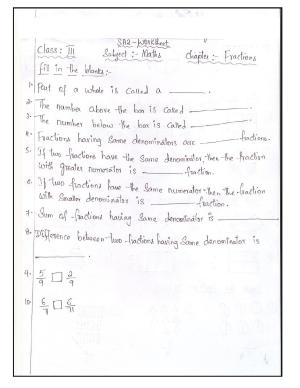 SA2-Worksheet
Class: III Subject :- Maths chapter:- Fractions
fill in the blanks:-
1. Part of a whole is called a ______.
2. The number above the bar is called ______
3. The number below the bar is called ______
4. Fractions having same denominators are ______ fractions.
5. If two fractions have the same denominator, then the fraction
with greater numerator is ______ fraction.
6. If two fractions have the same numerator then the fraction
with smaller denominator is ______ fraction.
7. Sum of fractions having same denominator is ______
8. Difference between two fractions having same denominator is
______.
9. 5/9 □ 2/9
10. 6/7 □ 6/11